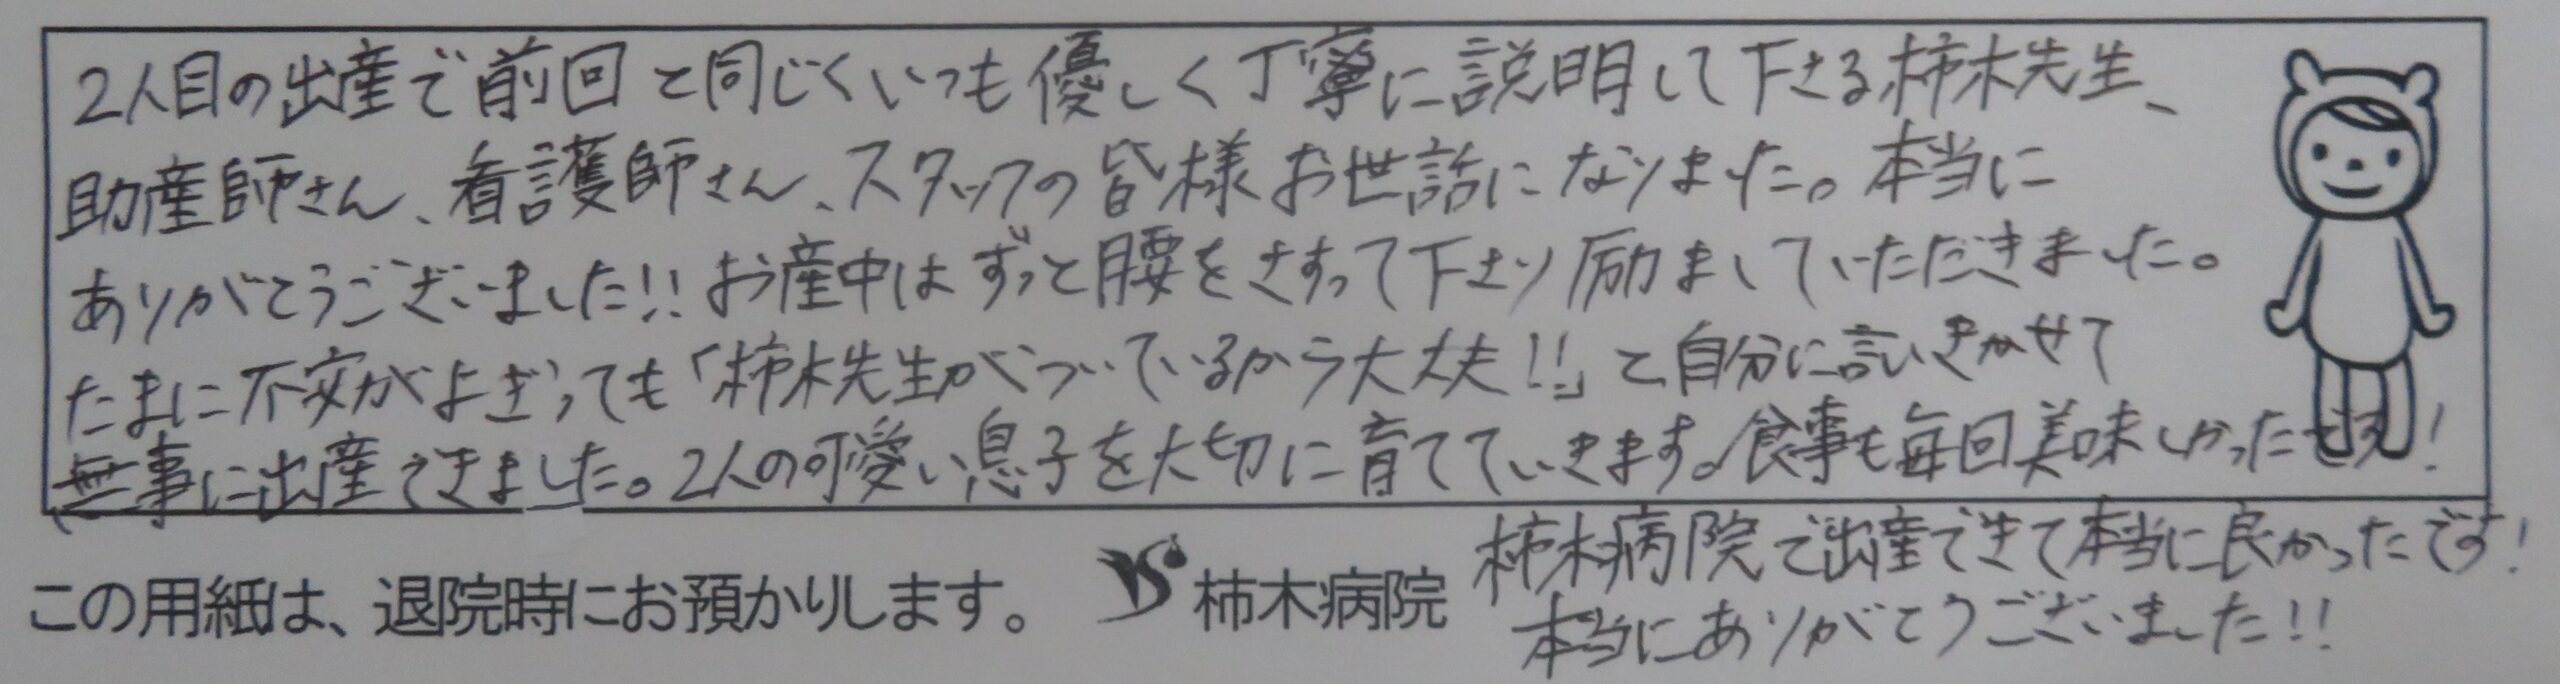 2人目の出産で前回と同じくいつも優しく丁寧に説明して下さる柿木先生、
助産師さん、看護師さん、スタッフの皆様お世話になりました。本当に
ありがとうございました!!お産中はずっと腰をさすって下さり励ましていただきました。
たまに不安がよぎっても「柿木先生がついているから大丈夫!!」と自分に言いきかせて
無事に出産できました。2人の可愛い息子を大切に育てていきます。食事も毎回美味しかったです!
柿木病院で出産できて本当に良かったです!
本当にありがとうございました!!
この用紙は、退院時にお預かりします。 柿木病院